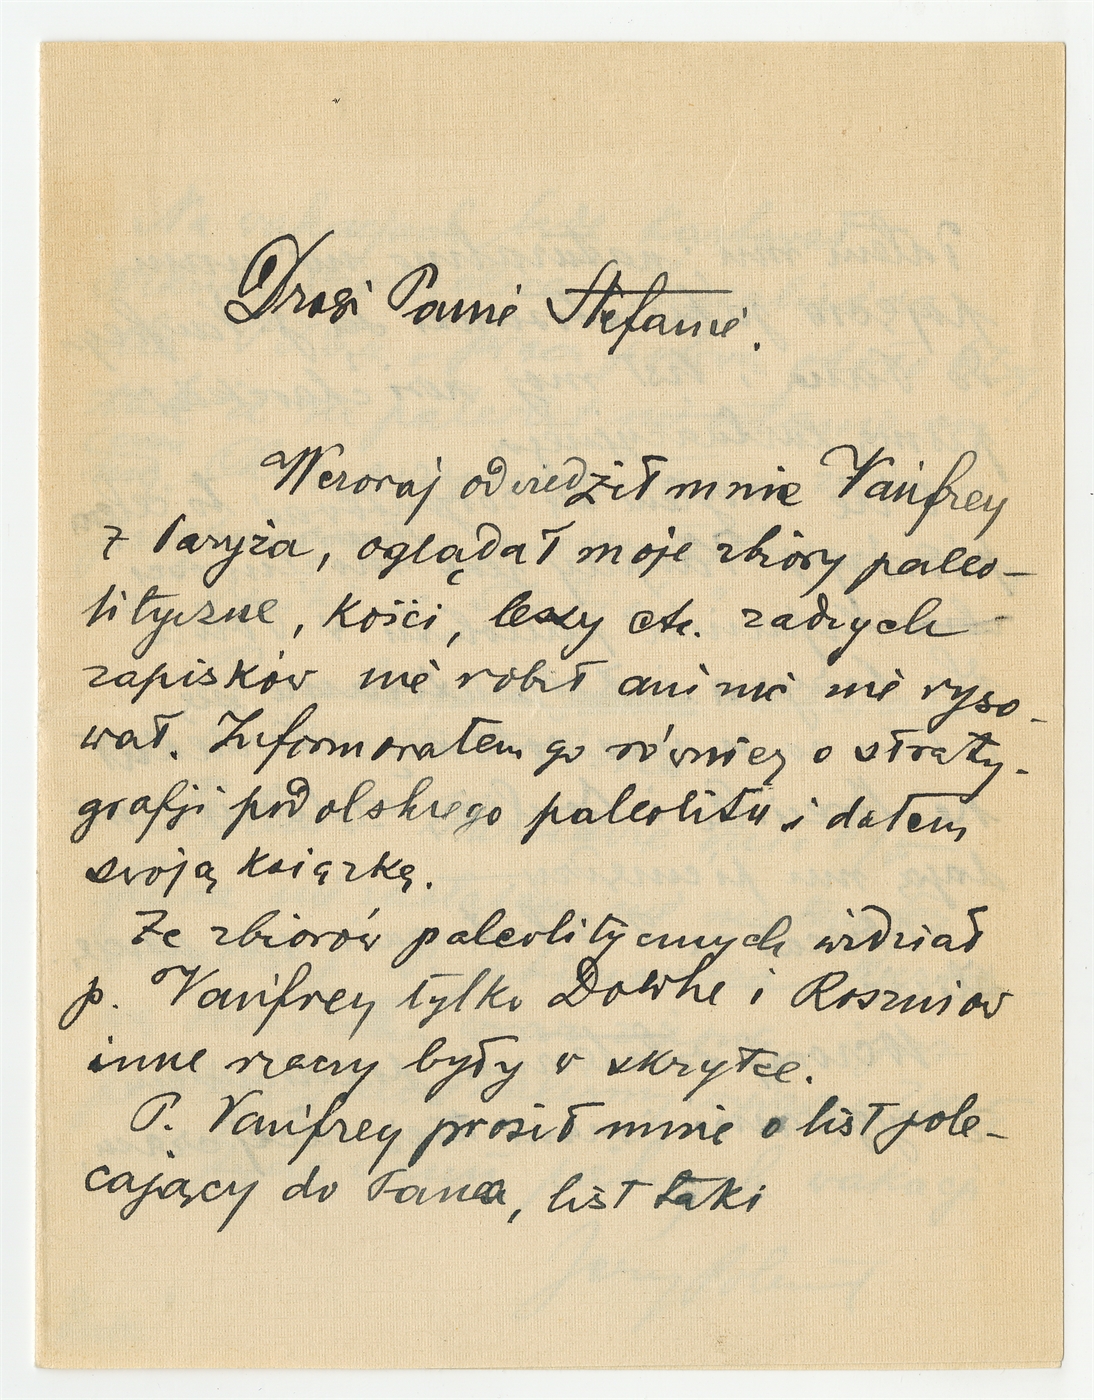 Drogi Panie Stefanie.
Wczoraj odwiedził mnie Vaufrey
z Paryża, oglądał moje zbiory paleo-
lityczne, kości, lessy etc. żadnych
zapisków nie robił ani nic nie ryso-
wał. Informowałem go również o straty-
grafji podolskiego paleolitu i dałem
swoją książkę.
Ze zbiorów paleolitycznych widział
p. Vaufrey tylko Dowhe i Roszniow
inne rzeczy były w skrytce.
P. Vaufrey prosił mnie o list pole-
cający do Pana, list taki